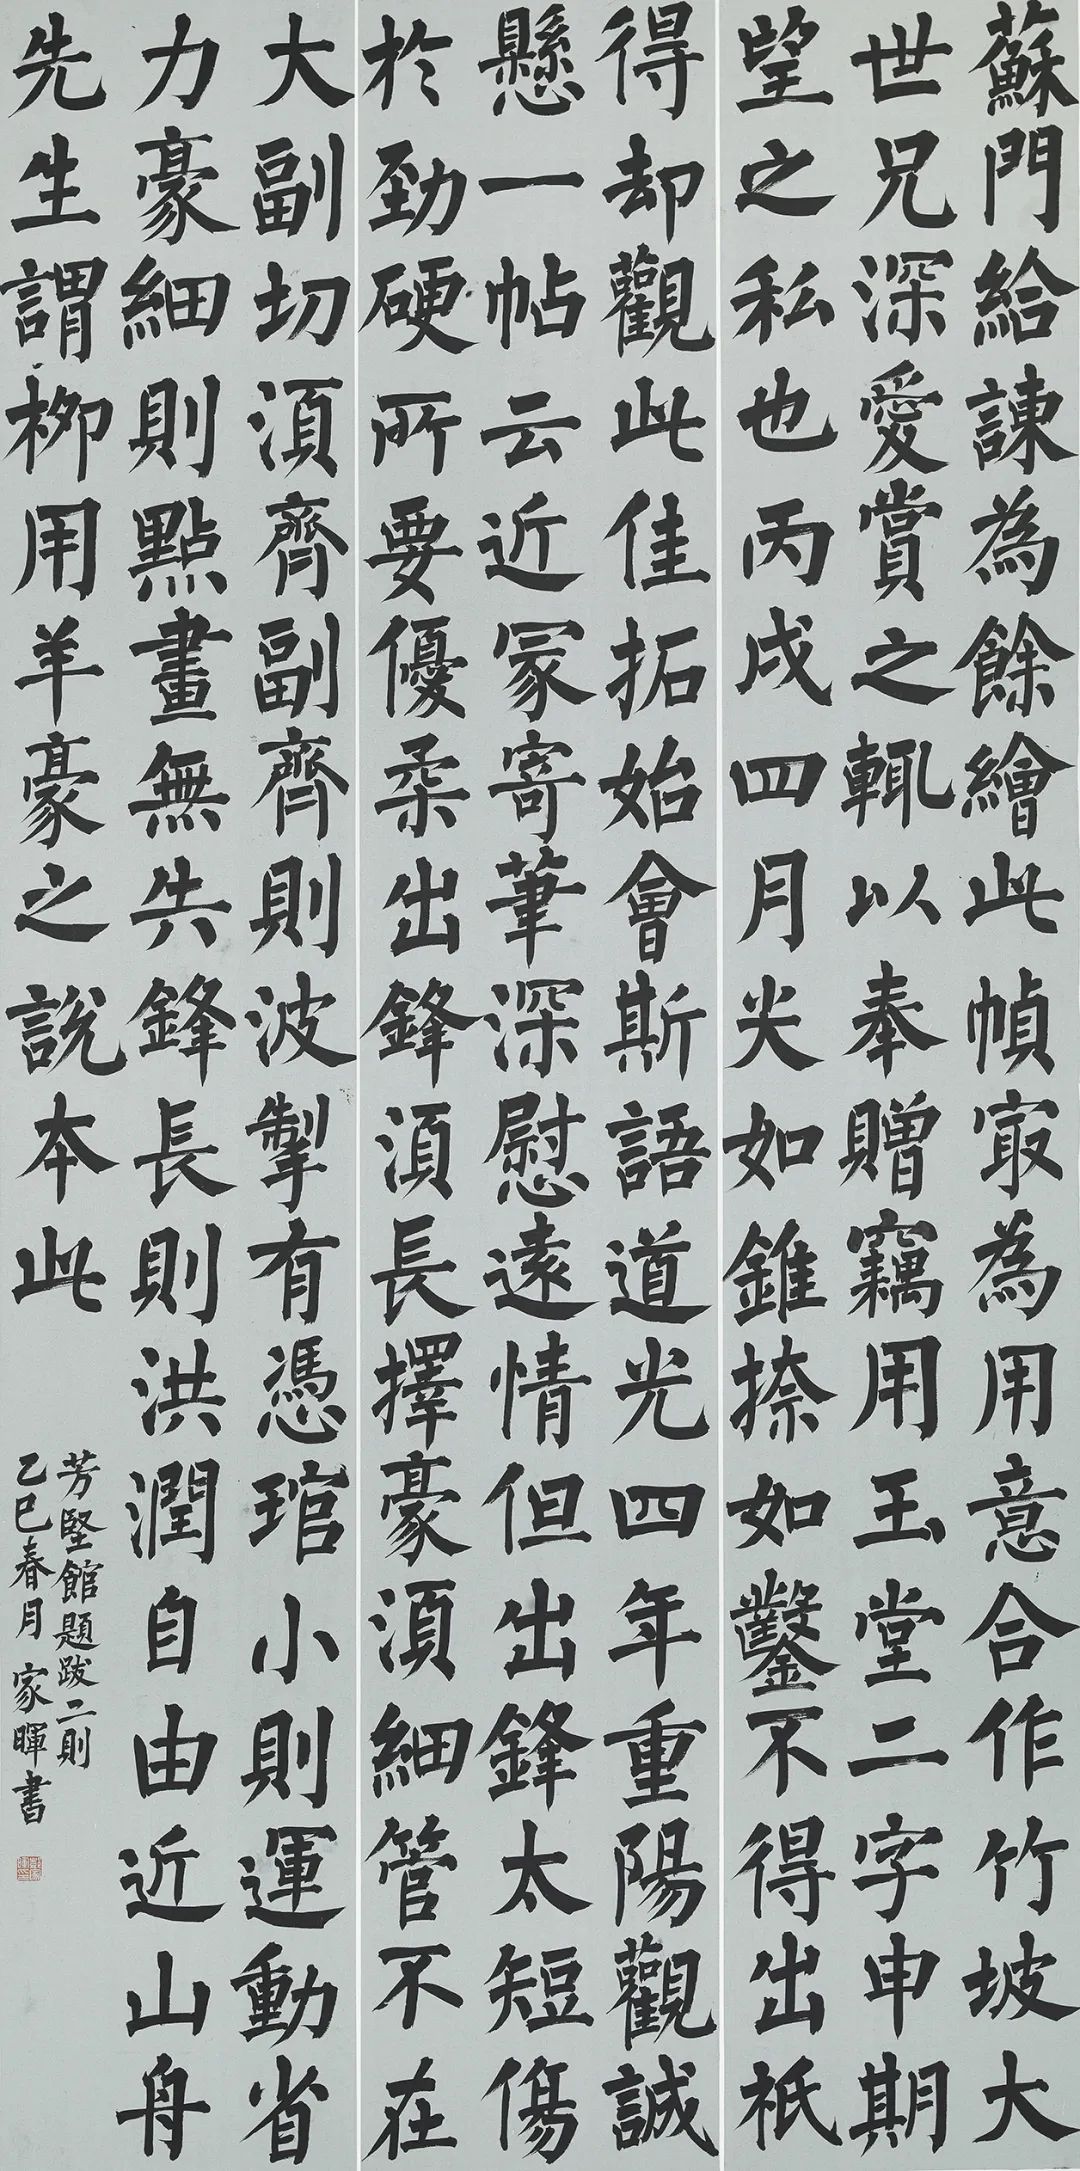 蘇門給諫為餘繪此幀冣為用意合作竹坡大
世兄深愛賞之輒以奉贈竊用玉堂二字申期
望之私也丙戌四月尖如錐捺如鑿不得出祇
得却觀此佳拓始會斯語道光四年重陽觀誠
懸一帖云近冢寄筆深慰遠情但出鋒太短傷
於勁硬所要優柔出鋒須長擇豪須細管不在
大副切須齊副齊則波掣有憑琯小則運動省
力豪細則點畫無失鋒長則洪潤自由近山舟
先生謂柳用羊豪之說本此
芳堅館題跋二則
乙巳春月 家暉書